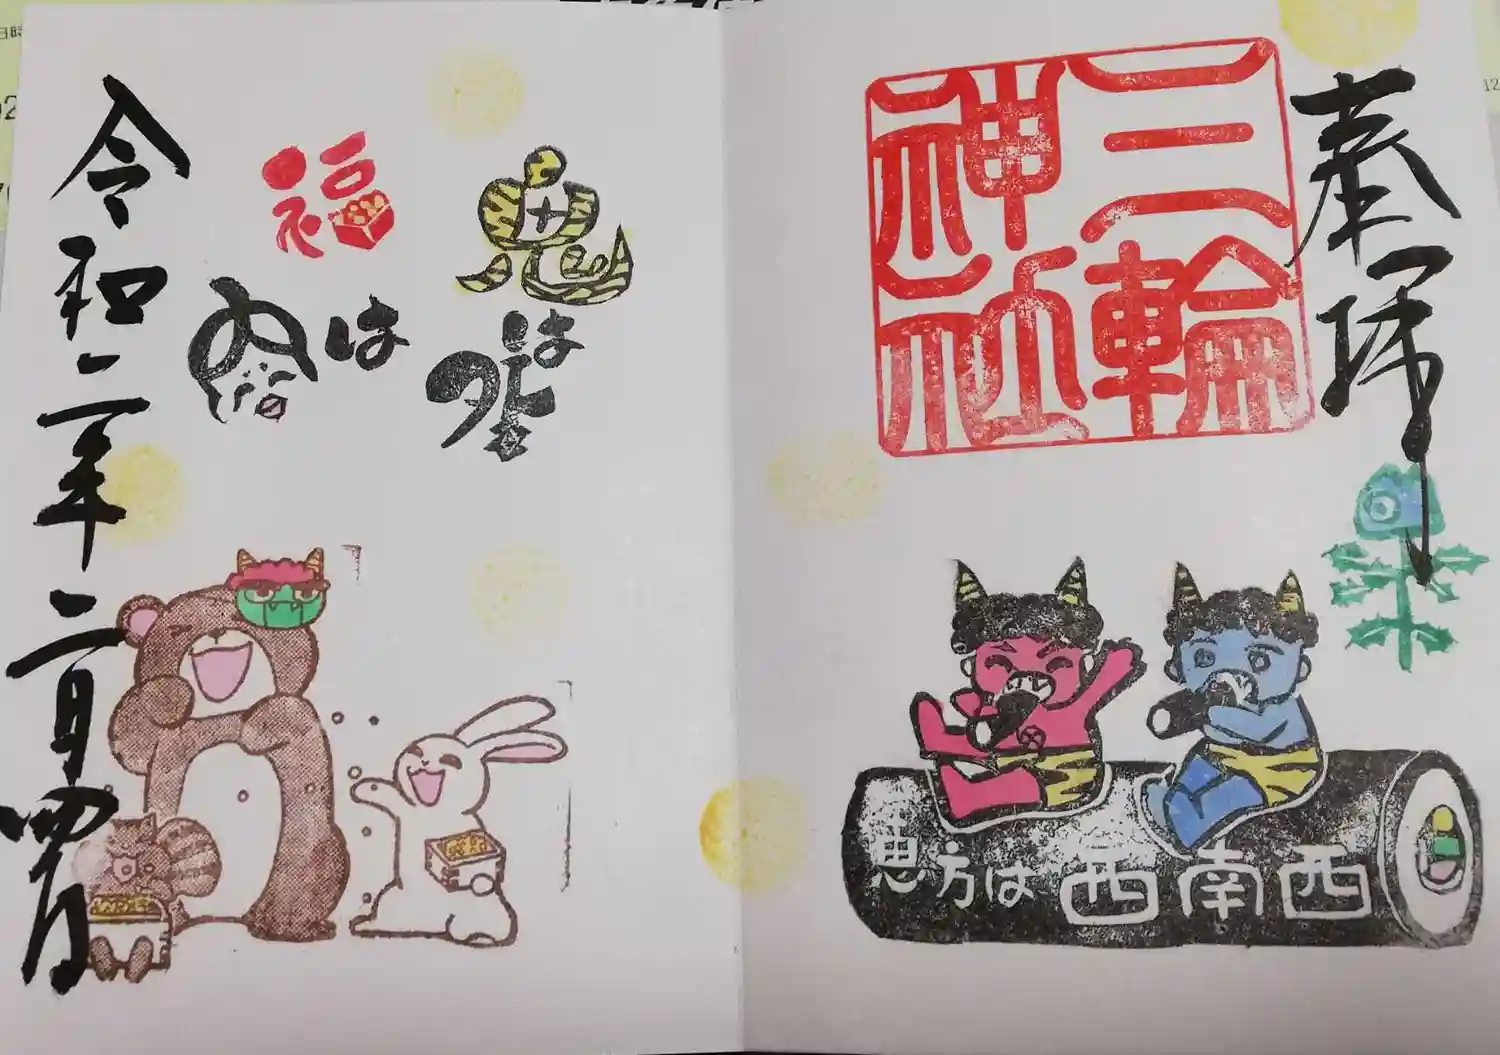 奉拝
三輪
神社
恵方は西南西
鬼は外
福は内
令和二年二月四日
日時